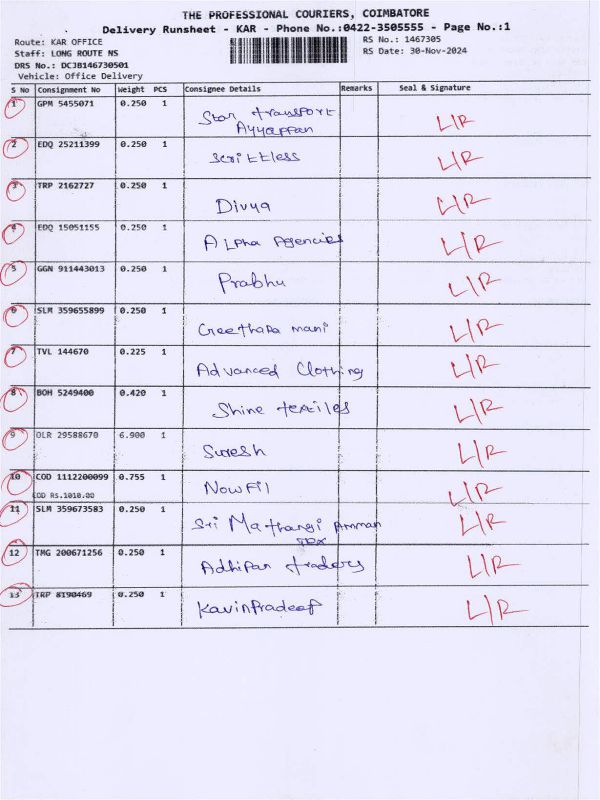 THE PROFESSIONAL COURIERS, COIMBATORE
Delivery Runsheet - KAR - Phone No.:0422-3505555 - Page No.:1
Route: KAR OFFICE
Staff: LONG ROUTE NS
DRS No.: DCJB146730501
Vehicle: Office Delivery
RS No.: 1467305
RS Date: 30-Nov-2024
S No Consignment No Weight PCS Consignee Details Remarks Seal & Signature
1 GPM 5455071 0.250 1 Star transport
Ayyappan L/R
2 EDQ 25211399 0.250 1 L/R
3 TRP 2162727 0.250 1 Divya L/R
4 EDQ 15051155 0.250 1 Alpha Agencies L/R
5 GGN 911443013 0.250 1 Prabhu L/R
6 SLM 359655899 0.250 1 mani L/R
7 TVL 144670 0.225 1 Advanced Clothing L/R
8 BOH 5249400 0.420 1 Shine textiles L/R
9 OLR 29588670 6.900 1 Suresh L/R
10 COD 1112200099 0.755 1 Nowfil L/R
COD RS.1010.00
11 SLM 359673583 0.250 1 Sri Mathangi Amman
Tex L/R
12 TMG 200671256 0.250 1 Adhipan traders L/R
13 TRP 8190469 0.250 1 KavinPradeep L/R